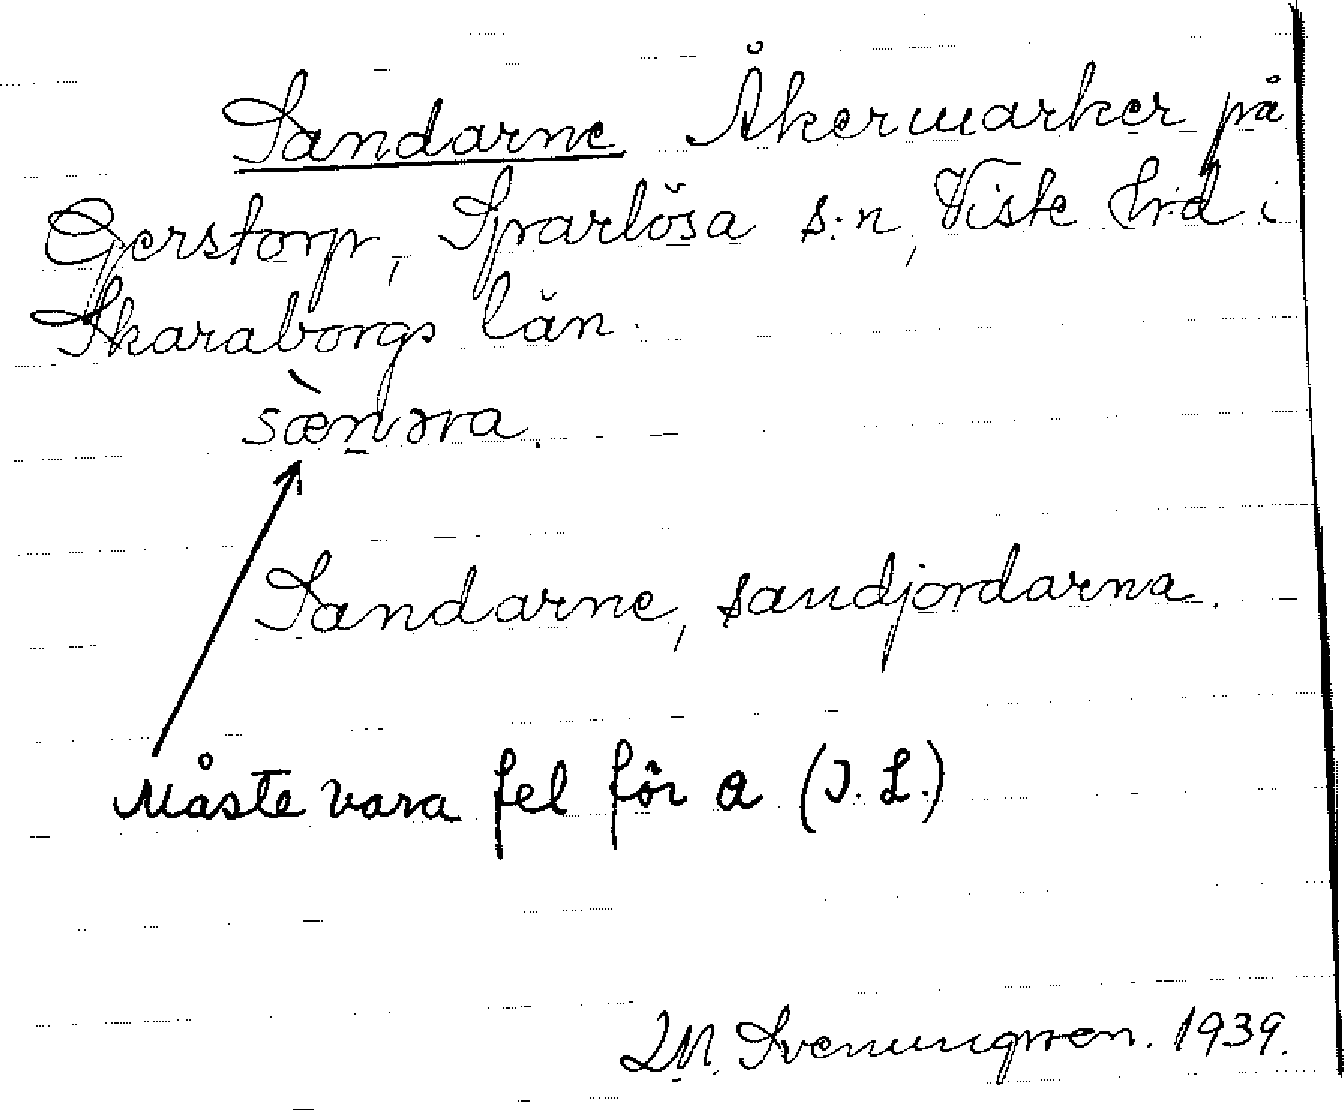 Sandarne Åkermarker på
Gerstorp, Sparlösa s:n, Viste hrd i
Skaraborgs län.
sæ̀nəra.
Sandarne, sandjordarna.
Måste vara fel för a (I. L.)
Svenungsson. 1939.